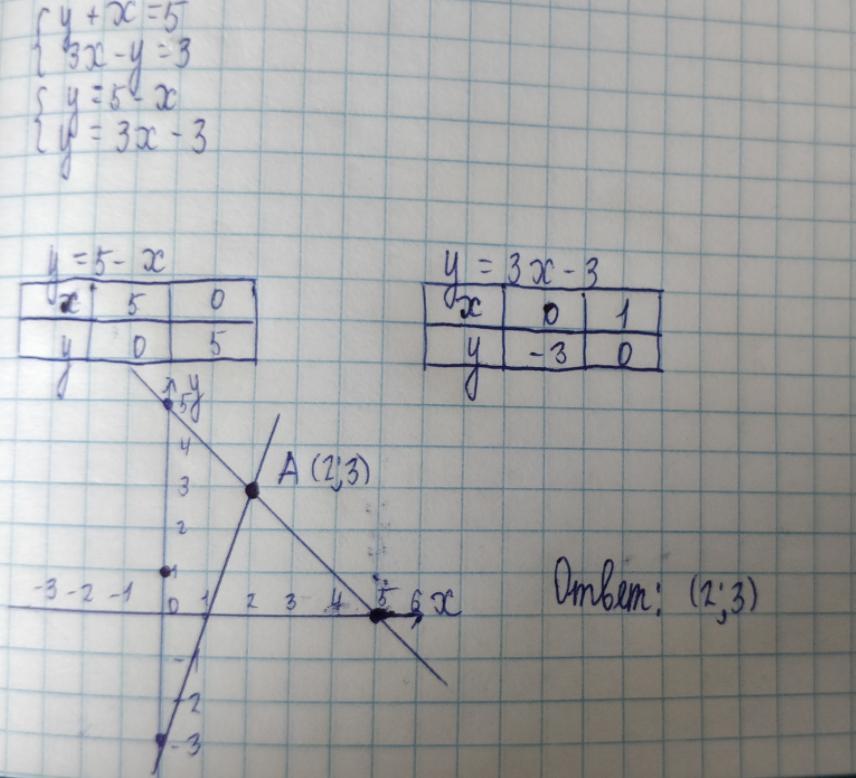 { y + x = 5
{ 3x - y = 3
{ y = 5 - x
{ y = 3x - 3
y = 5 - x
x 5 0
y 0 5
y = 3x - 3
x 0 1
y -3 0
y
5
4
A (2;3)
3
2
1
-3 -2 -1 0 1 2 3 4 5 6 x
Ответ: (2;3)
-1
-2
-3